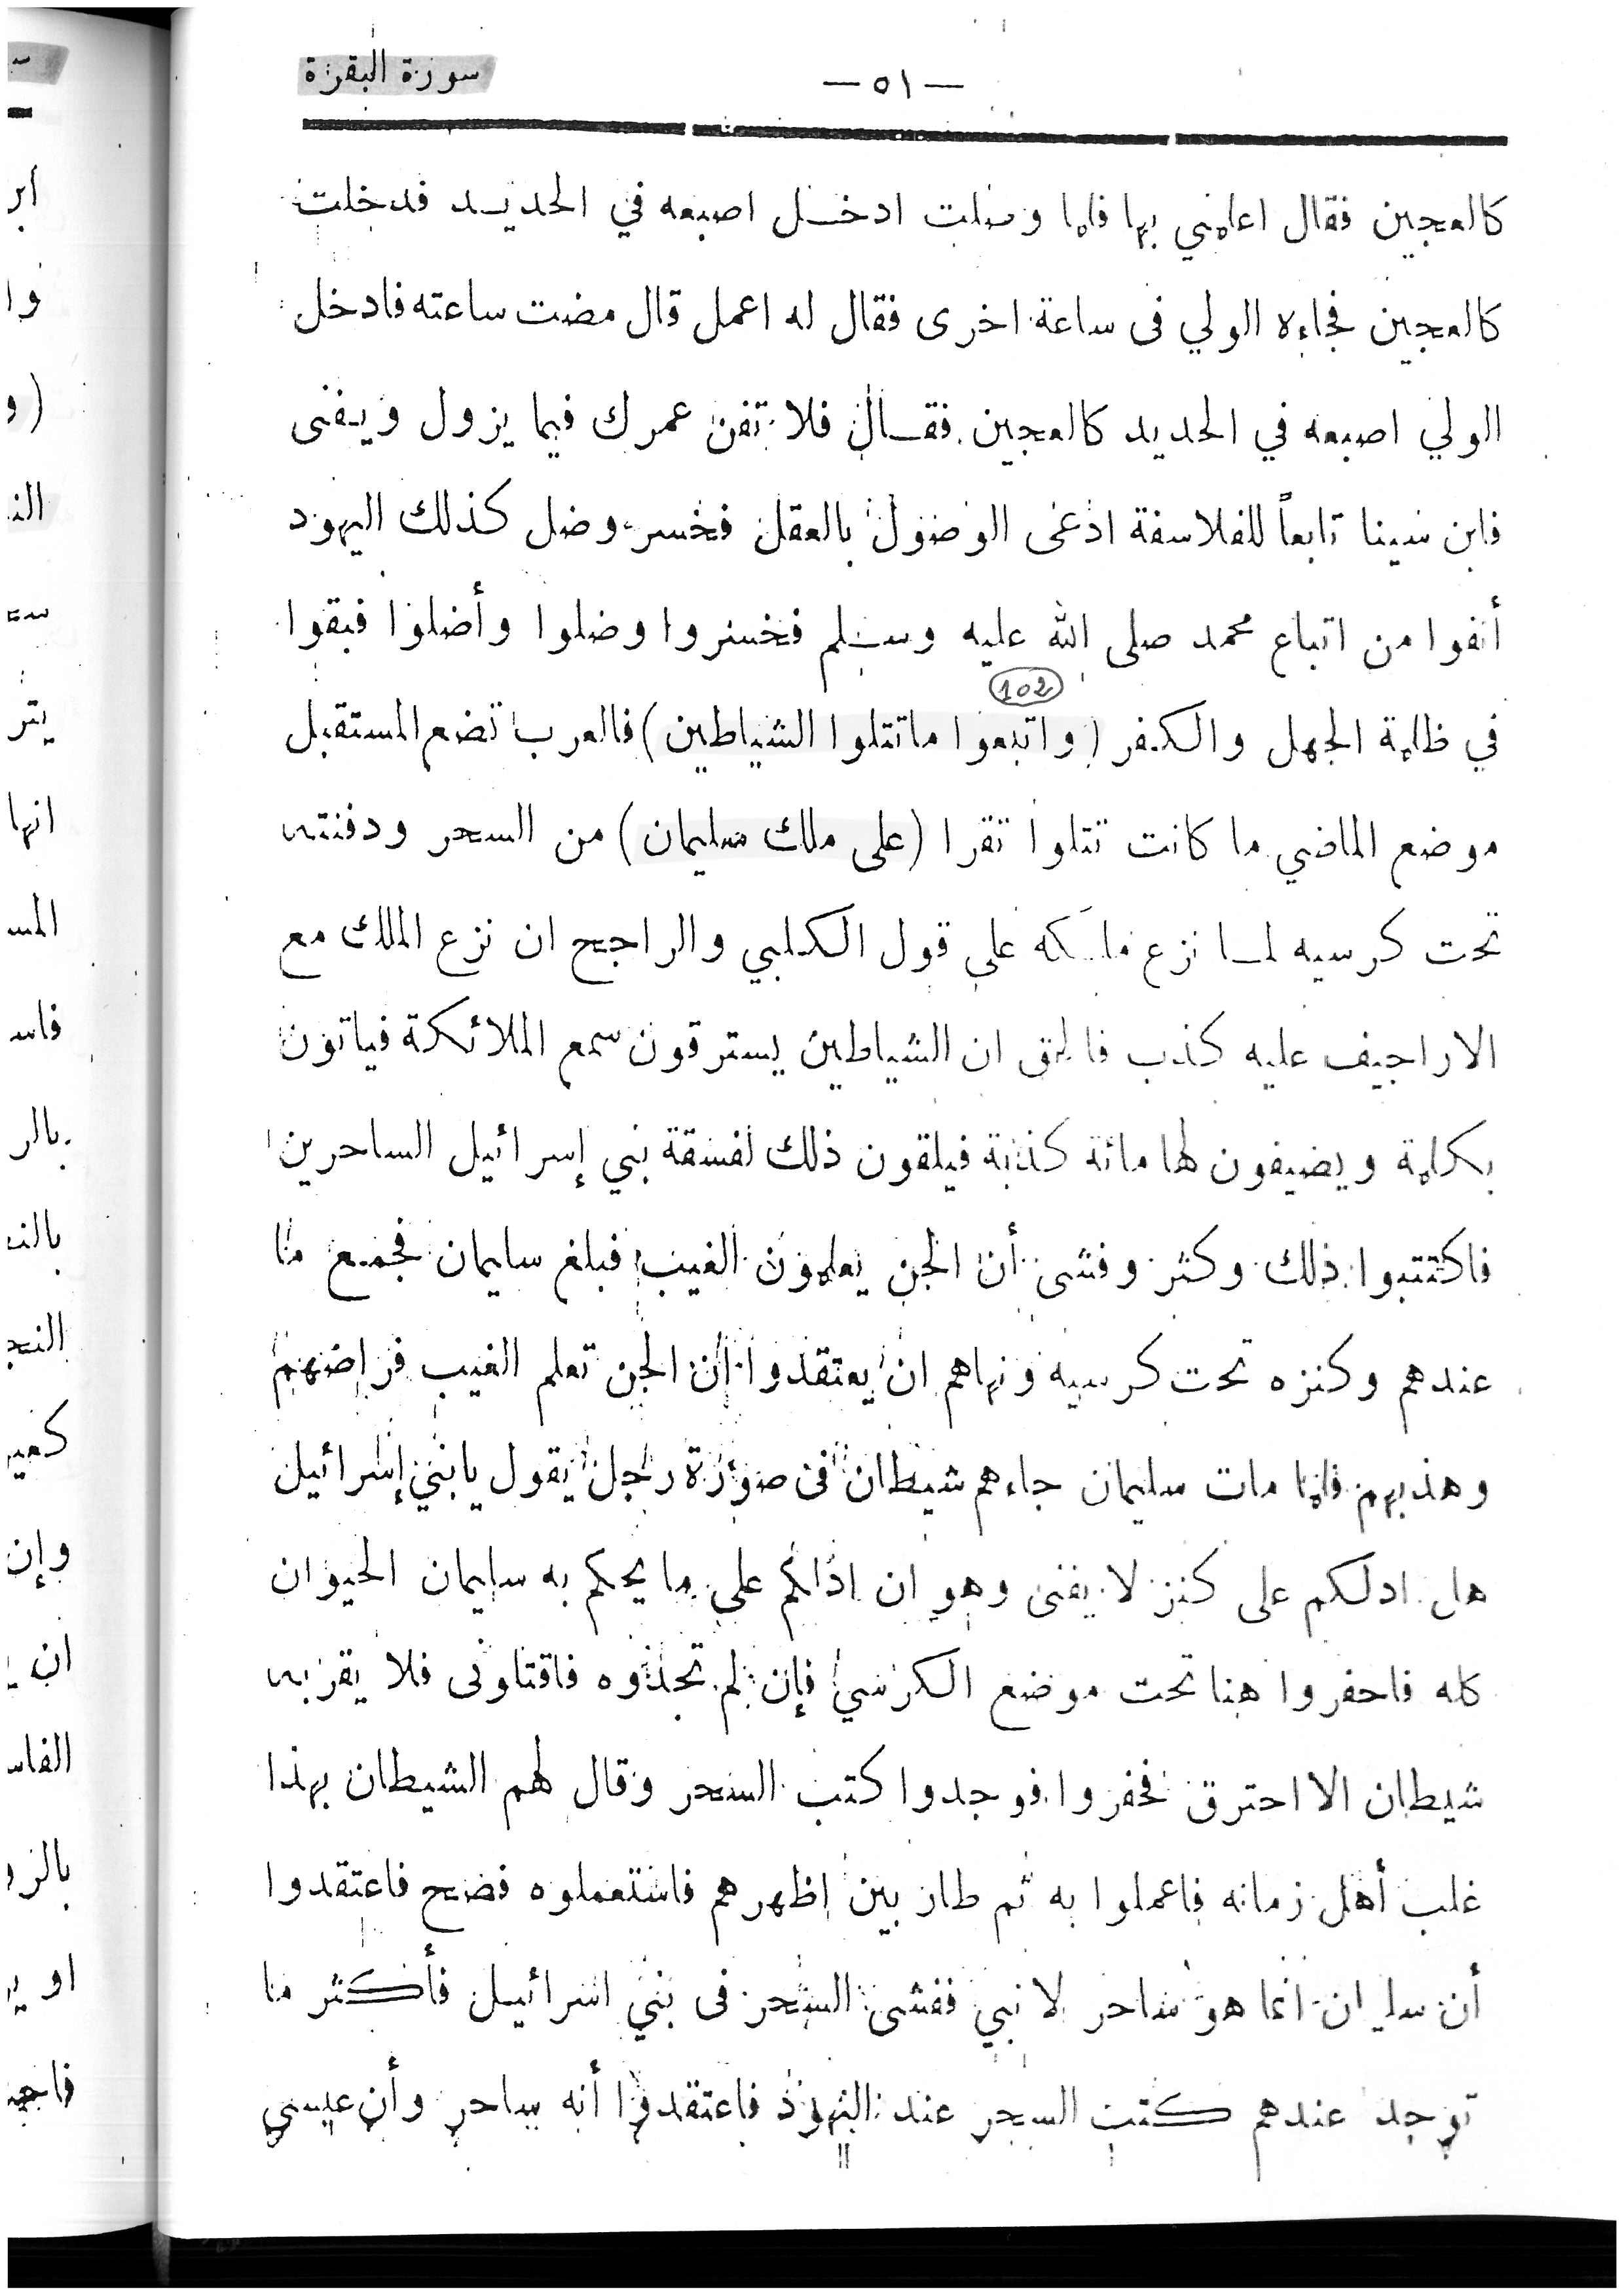 سورة البقرة
— ٥١ —
كالعجين فقال اعلمني بها فلما وصلت ادخـل اصبعه في الحديـد فدخلت
كالعجين فجاءه الولي فى ساعة اخرى فقال له اعمل قال مضت ساعته فادخل
الولي اصبعه في الحديد كالعجين فقـال فلا تفن عمرك فيما يزول ويفنى
فابن سينا تابعاً للفلاسفة ادعى الوصول بالعقل فخسر وضل كذلك اليهود
أنفوا من اتباع محمد صلى الله عليه وسلم فخسروا وضلوا وأضلوا فبقوا
102
في ظلمة الجهل والكفر (واتبعوا ماتتلوا الشياطين) فالعرب تضع المستقبل
موضع الماضي ما كانت تتلوا تقرا (على ملك سليمان) من السحر ودفنته
تحت كرسيه لمـا نزع ملكه على قول الكلبي والراجح ان نزع الملك مع
الاراجيف عليه كذب فالحق ان الشياطين يسترقون سمع الملائكة فياتون
بكلمة ويضيفون لها مائة كذبة فيلقون ذلك لفسقة بني إسرائيل الساحرين
فاكتتبوا ذلك وكثر وفشى أن الجن يعلمون الغيب فبلغ سليمان فجمع ما
عندهم وكنزه تحت كرسيه ونهاهم ان يعتقدوا أن الجن تعلم الغيب فراضهم
وهذبهم فلما مات سليمان جاءهم شيطان فى صورة رجل يقول يابني إسرائيل
هل ادلكم على كنز لا يفنى وهو ان ادلكم على ما يحكم به سليمان الحيوان
كله فاحفروا هنا تحت موضع الكرسي فإن لم تجدوه فاقتلونى فلا يقربه
شيطان الا احترق فحفروا فوجدوا كتب السحر وقال لهم الشيطان بهذا
غلب أهل زمانه فاعملوا به ثم طار بين اظهرهم فاستعملوه فصح فاعتقدوا
أن سليمان انما هو ساحر لا نبي ففشى السحر فى بني اسرائيل فأكثر ما
توجد عندهم كتب السحر عند اليهود فاعتقدوا أنه ساحر وأن عيسى